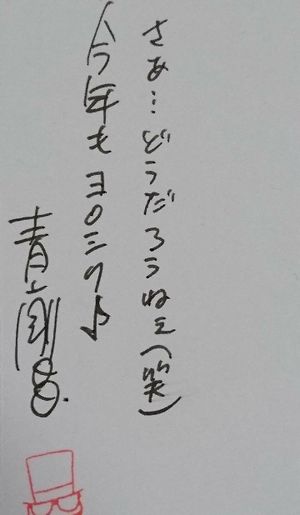 さあ…どうだろうねぇ(笑)
今年もヨロシク♪
青山剛昌.